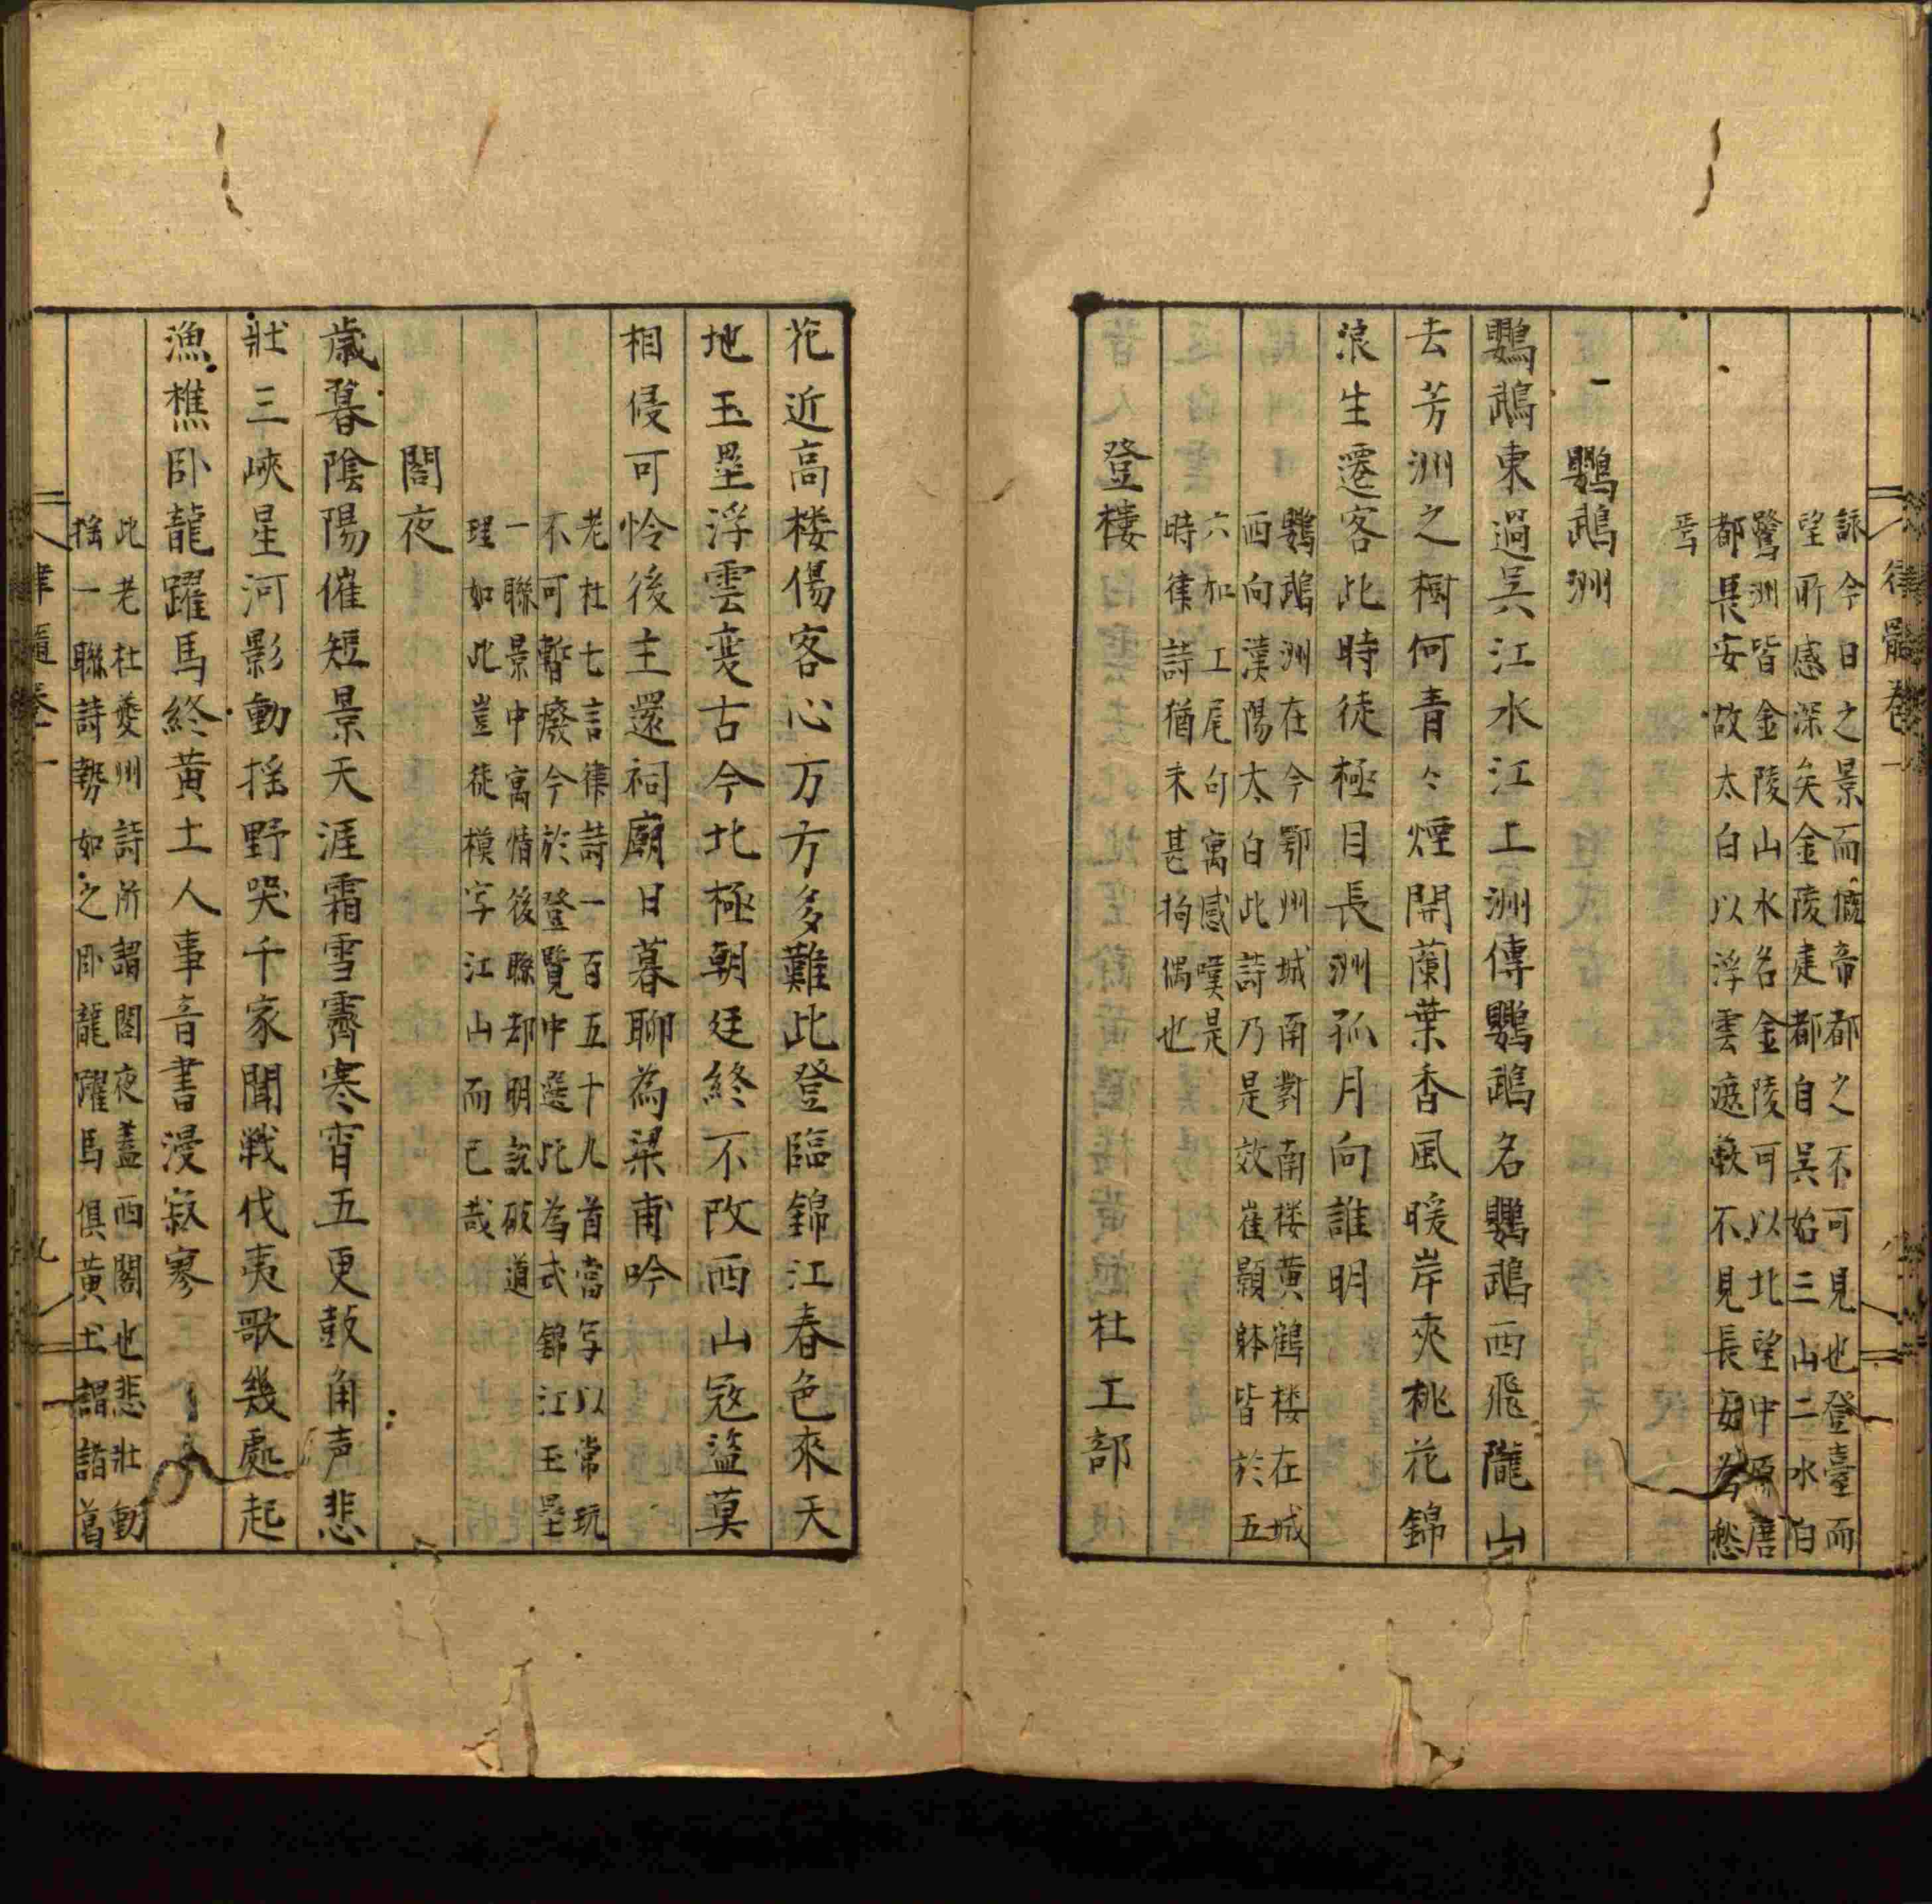 律髓卷一
詠今日之景而慨帝都之不可見也登臺而
望所感深矣金陵建都自吳始三山二水白
鷺洲皆金陵山水名金陵可以北望中原唐
都長安故太白以浮雲遮蔽不見長安為愁
焉
鸚鵡洲
鸚鵡東過吳江水江上洲傳鸚鵡名鸚鵡西飛隴山
去芳洲之樹何青〻煙開蘭葉香風暖岸夾桃花錦
浪生遷客此時徒極目長洲孤月向誰明
鸚鵡洲在今鄂州城南對南楼黄鶴楼在城
西向漢陽太白此詩乃是效崔顥躰皆於五
六加工尾句寓感嘆是
時律詩猶未甚拘偶也
登樓 杜工部
花近高楼傷客心万方多難此登臨錦江春色來天
地玉壘浮雲変古今北極朝廷終不改西山寇盜莫
相侵可怜後主還祠廟日暮聊為梁甫吟
老杜七言律詩一百五十九首當写以常玩
不可暫廢今於登覽中選此為式錦江玉壘
一聯景中寓情後聯却明說破道
理如此豈徒模写江山而已哉
閣夜
歳暮陰陽催短景天涯霜雪霽寒宵五更鼓角声悲
壯三峽星河影動揺野哭千家聞戦伐夷歌幾處起
漁樵卧龍躍馬終黄土人事音書漫寂寥
此老杜夔州詩所謂閣夜盖西閣也悲壯動
揺一聯詩勢如之卧龍躍馬俱黄土謂諸葛
律髓卷一
九